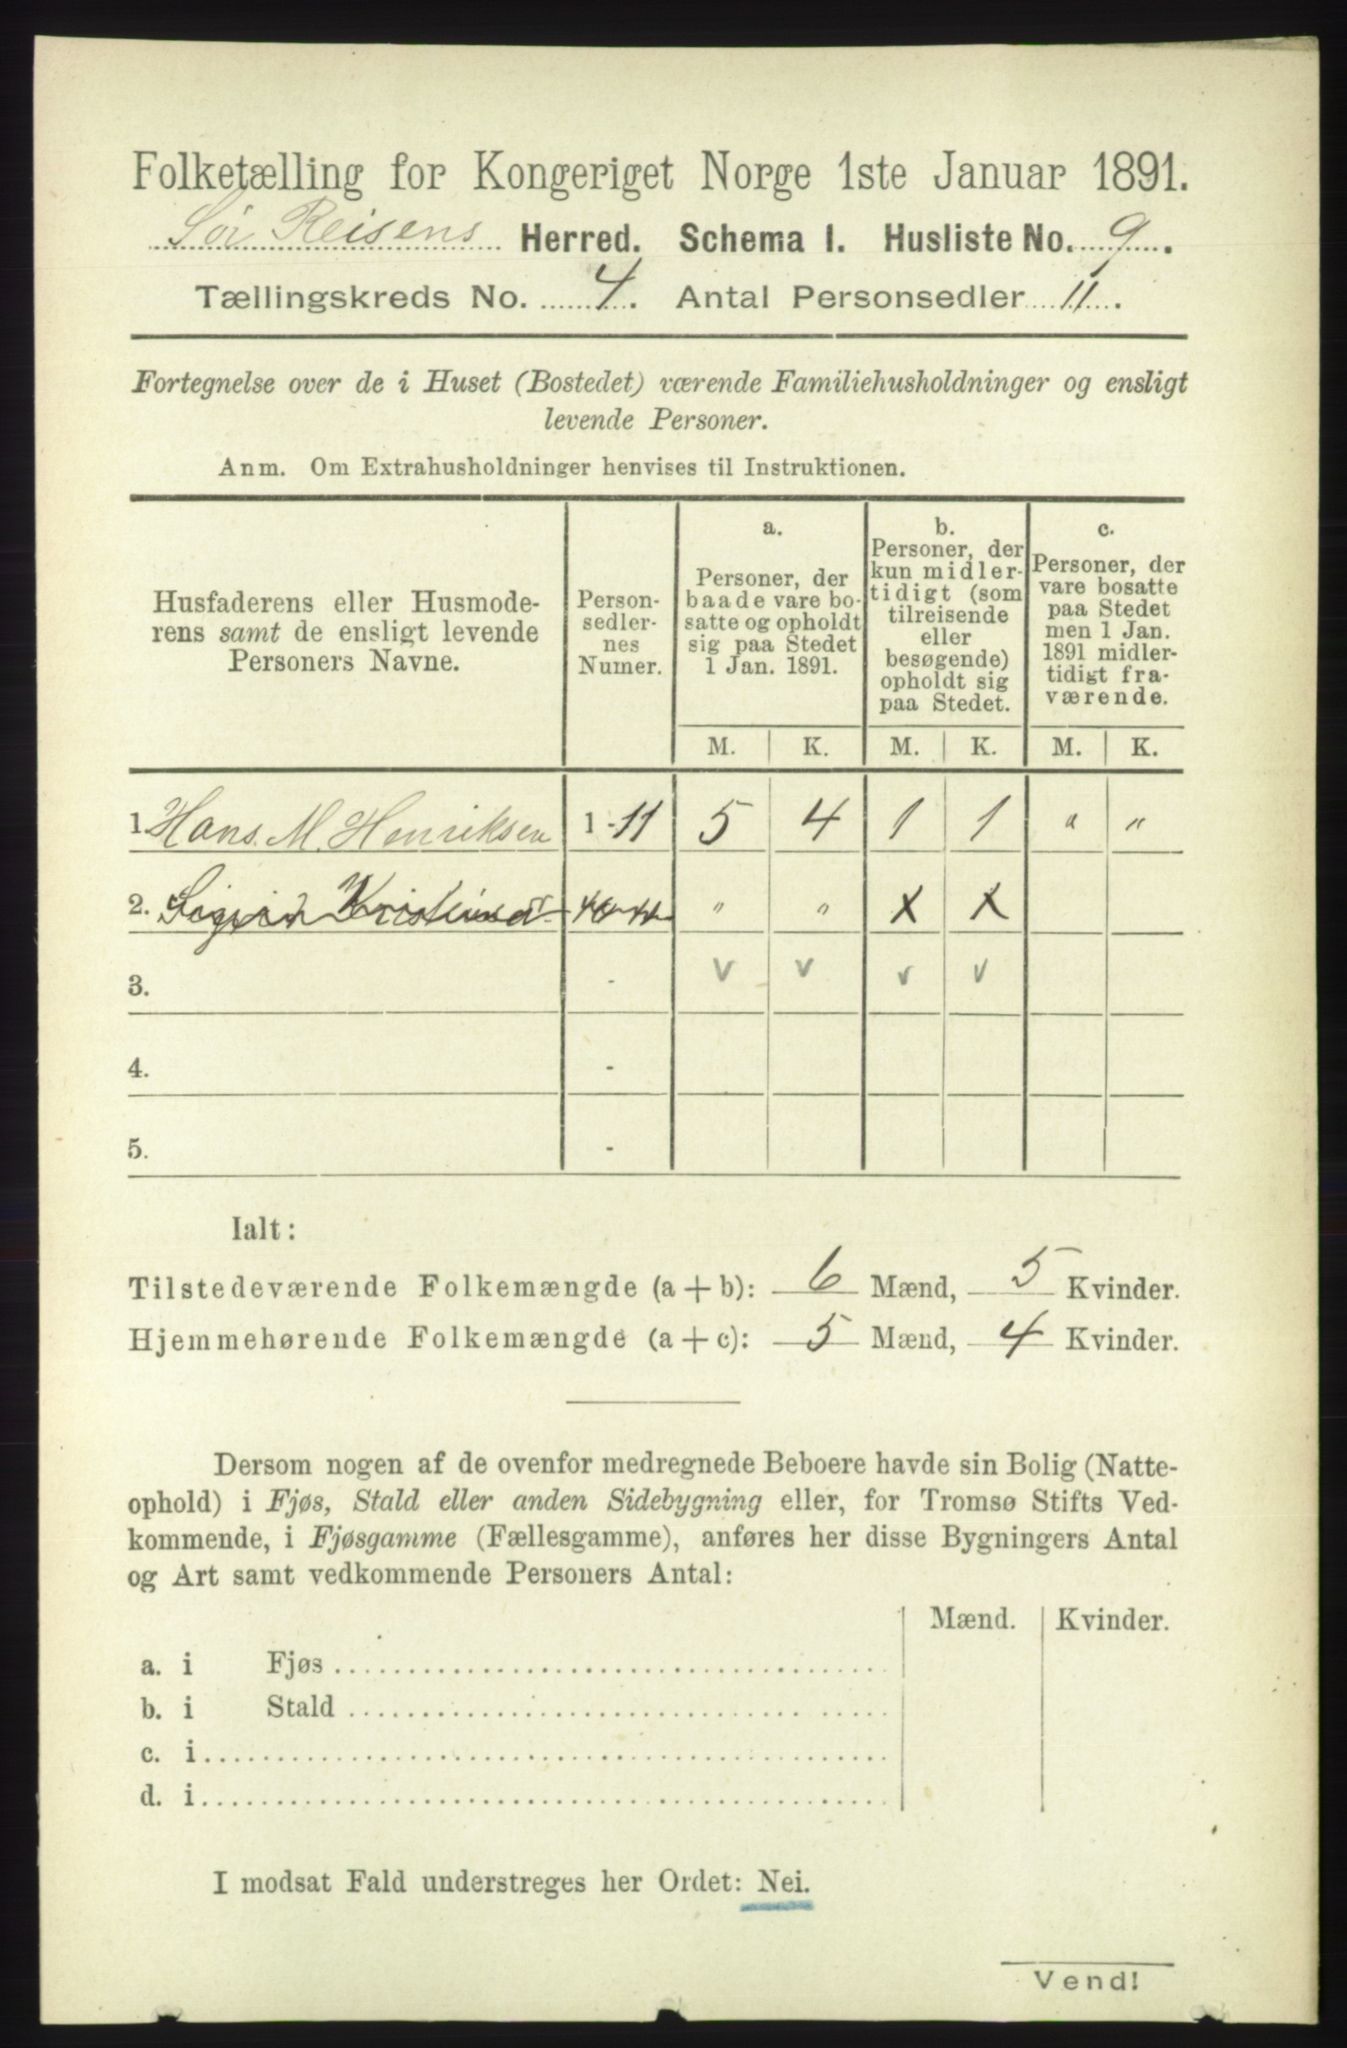 Folketælling for Kongeriget Norge 1ste Januar 1891.
Sör Reisens Herred. Schema I. Husliste No. 9.
Tællingskreds No. 4. Antal Personsedler 11.
Fortegnelse over de i Huset (Bostedet) værende Familiehusholdninger og ensligt
levende Personer.
Anm. Om Extrahusholdninger henvises til Instruktionen.
Husfaderens eller Husmode-
rens samt de ensligt levende
Personers Navne.
Person-
sedler-
nes
Numer.
a.
Personer, der
baade vare bo-
satte og opholdt
sig paa Stedet
1 Jan. 1891.
b.
Personer, der
kun midler-
tidigt (som
tilreisende
eller
besøgende)
opholdt sig
paa Stedet.
c.
Personer, der
vare bosatte
paa Stedet
men 1 Jan.
1891 midler-
tidigt fra-
værende.
M. K. M. K. M. K.
1. Hans M. Henriksen 1-11 5 4 1 1 " "
2. Sigrid Kristina " " x x
3. - v v v v
4. -
5. -
Ialt:
Tilstedeværende Folkemængde (a + b): 6 Mænd, 5 Kvinder.
Hjemmehørende Folkemængde (a + c): 5 Mænd, 4 Kvinder.
Dersom nogen af de ovenfor medregnede Beboere havde sin Bolig (Natte-
ophold) i Fjøs, Stald eller anden Sidebygning eller, for Tromsø Stifts Ved-
kommende, i Fjøsgamme (Fællesgamme), anføres her disse Bygningers Antal
og Art samt vedkommende Personers Antal:
Mænd. Kvinder.
a. i Fjøs
b. i Stald
c. i
d. i
I modsat Fald understreges her Ordet: Nei.
Vend!